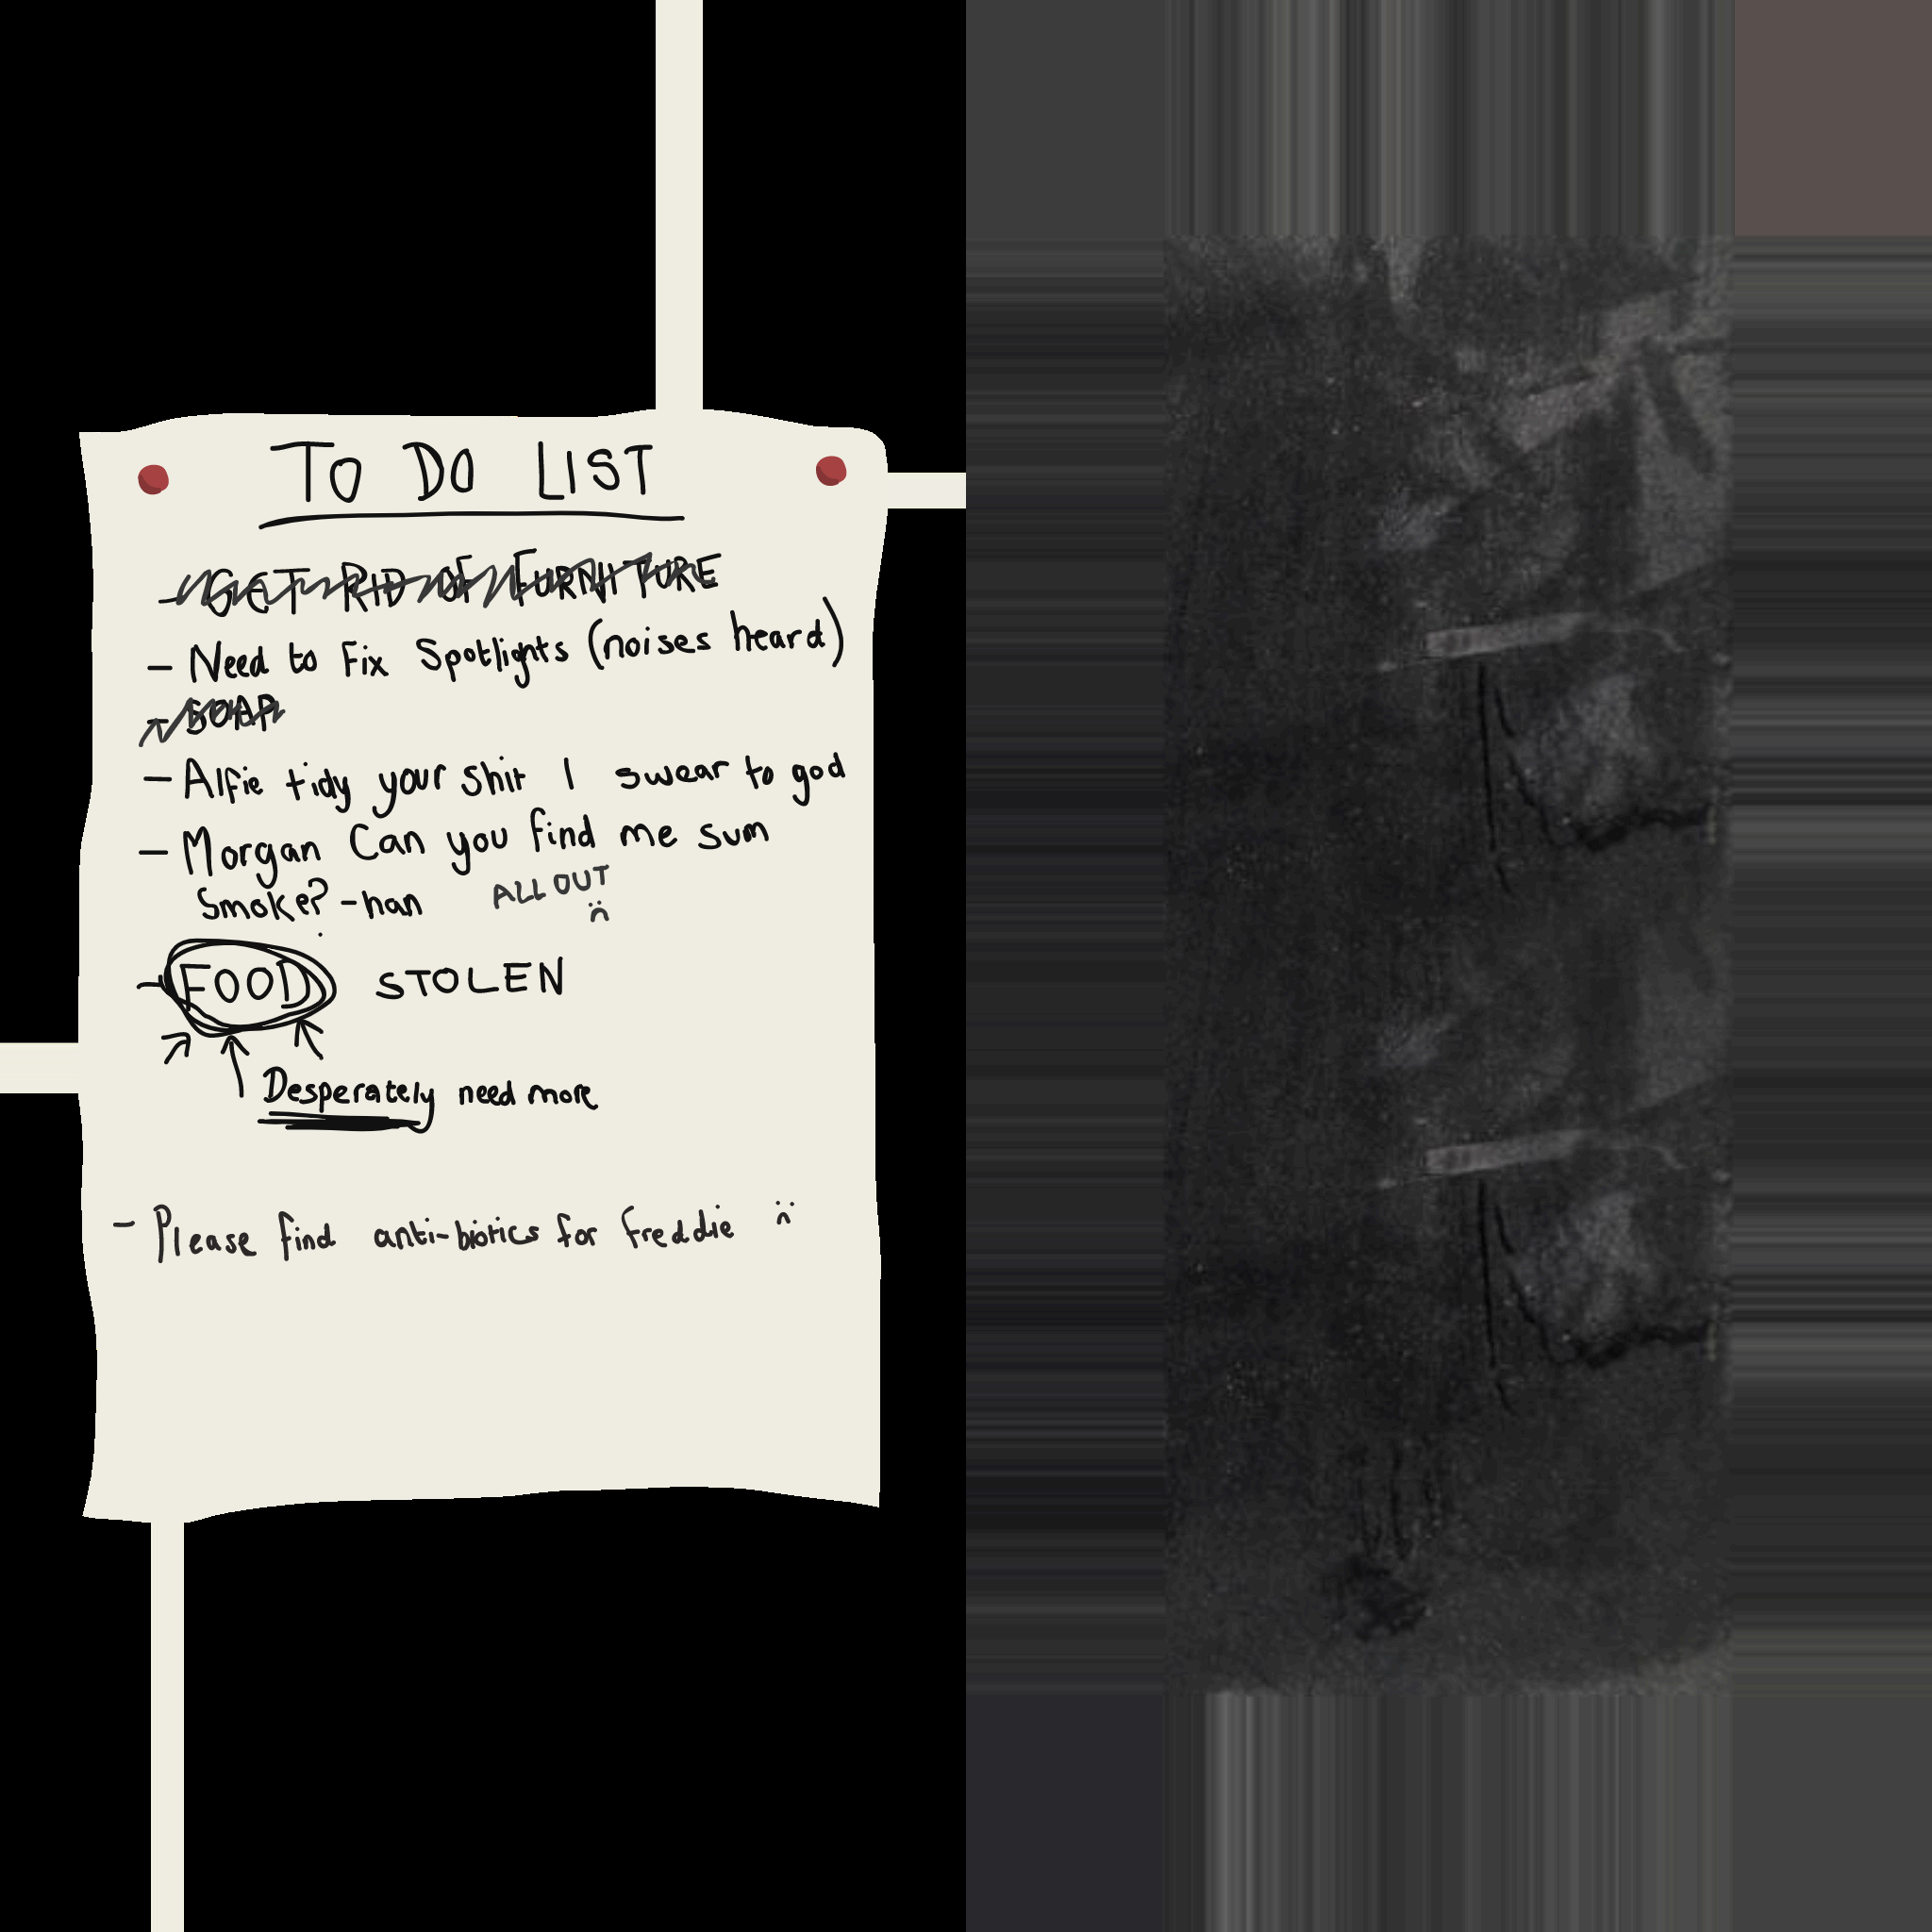 TO DO LIST
- GET RID OF FURNITURE
- Need to Fix Spotlights (noises heard)
- SOAP
- Alfie tidy your shit I swear to god
- Morgan Can you find me sum
Smoke? - han ALL OUT :(
- FOOD STOLEN
Desperately need more
- Please find anti-biotics for freddie :(